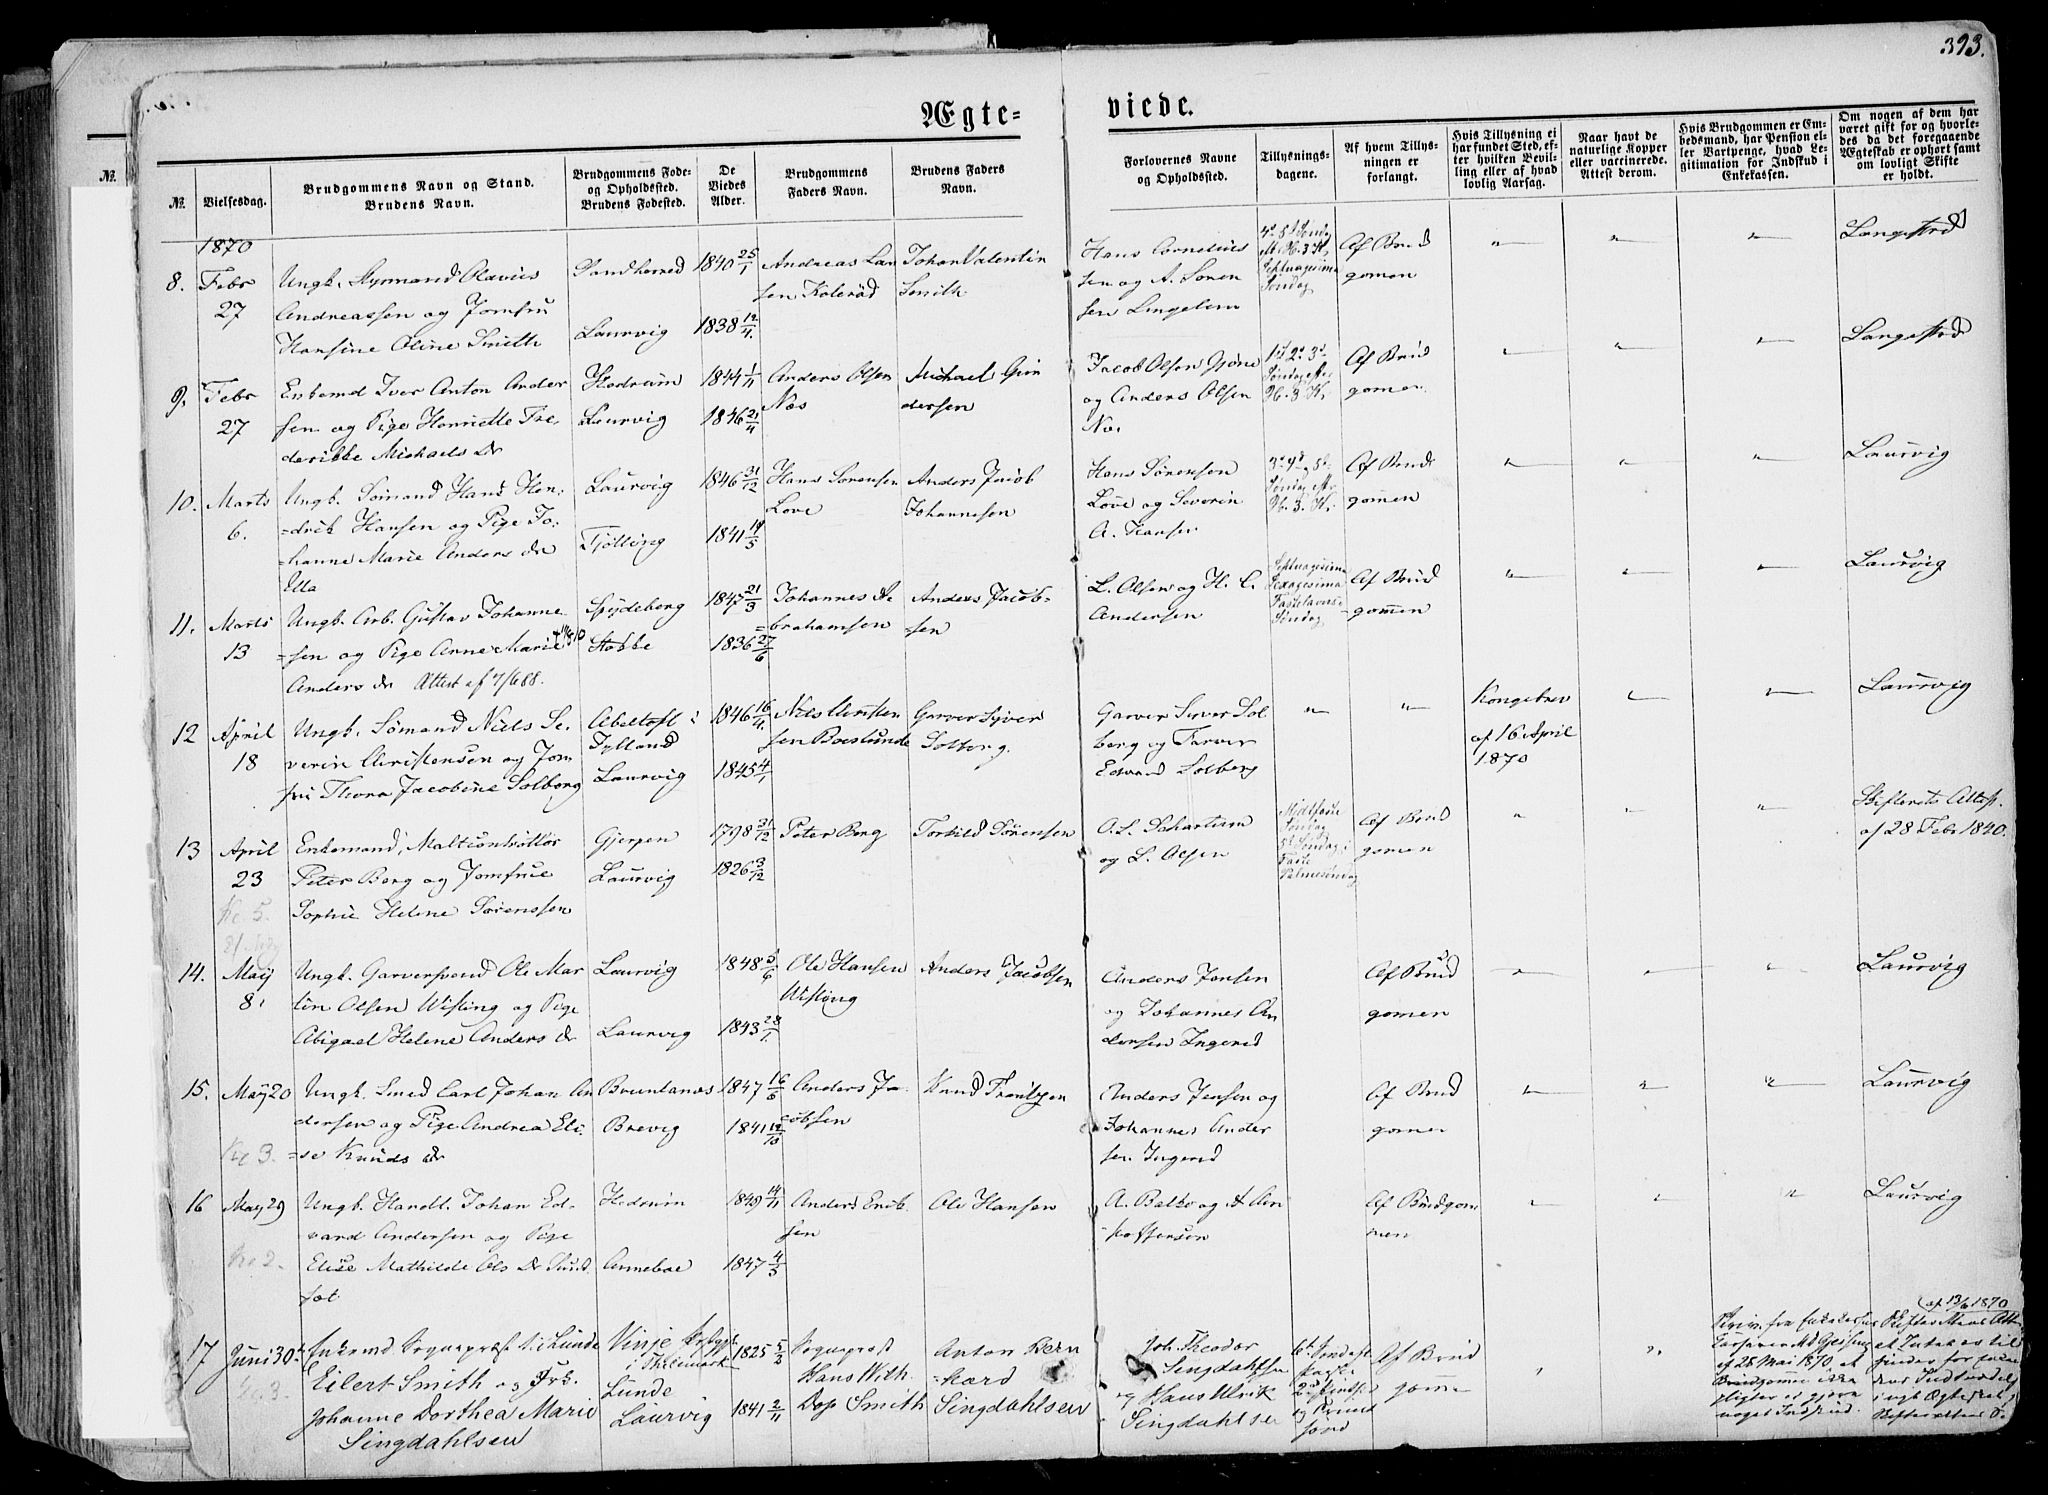 393.
Ægte=
viede.
№.
№.
Vielsesdag.
Brudgommens Navn og Stand.
Brudens Navn.
Brudgommens Føde-
og Opholdssted.
Brudens Fødested.
De
Viedes
Alder.
Brudgommens
Faders Navn.
Brudens Faders
Navn.
Forlovernes Navne
og Opholdssted.
Tillysnings-
dagene.
Af hvem Tillys-
ningen er
forlangt.
Hvis Tillysning ei
har fundet Sted, ef-
ter hvilken Bevil-
ling eller af hvad
lovlig Aarsag.
Naar havt de
naturlige Kopper
eller vaccinerede.
Attest derom.
Hvis Brudgommen er Em-
bedsmand, har Pension el-
ler Vartpenge, hvad Le-
gitimation for Indskud i
Enkekassen.
Om nogen af dem har
været gift før og hvorle-
des da det foregaaende
Ægteskab er ophørt samt
om lovligt Skifte
er holdt.
1870
8.
Febr
27
Ungk. Styrmand Olavus
Andreassen og Jomfru
Hansine Oline Smith
Sandherred
Laurvig
1840 25/1
1838 12/4
Andreas Lar
sen Kolerød
Johan Valentin
Smith
Hans Cornelius
sen og A. Soren
sen Lingelem
Septuagesima
Søndag
Af Brud
gomen
Langestrd
9.
Febr
27
Enkemd Iver Anton Ander
sen og Pige Henriette Fre-
derikke Michaels Dr
Hedrum
Laurvig
1844 1/11
1846 21/4
Anders Olsen
Næs
Michael Gun
dersen
Jacob Olsen Gjone
og Anders Olsen
Næs
1d 2d 3d
Søndag efter
H. 3 K.
Af Brud
gomen
Langestrd
10.
Marts
6.
Ungk. Sømand Hans Hen-
=drik Hansen og Pige Jo-
=hanne Marie Anders dr
Ula
Laurvig
Tjølling
1846 31/12
1841 19/5
Hans Sørensen
Løve
Anders Jacob
Johannesen
Hans Sørensen
Løve og Severin
A. Hansen
Søndag efter
H. 3. K.
Af Brud
gommen
Laurvig
11.
Marts
13
Ungk. Arb. Gustav Johanne
=sen og Pige Anne Marie
Anders dr Attest af 7/6 88.
Spydeberg
Stokke
1847 21/3
1836 27/6
Johannes A
=brahamsen
Anders Jacob=
sen
L. Olsen og H. C.
Andersen
Septuagesima
Sexagesima
Fastelavns
Søndag
Af Brud
gommen
Laurvig
12
April
18
Ungk. Sømand Niels Se
verin Christensen og Jom
fru Thora Jacobine Solberg
Æbeltoft i
Jylland
Laurvig
1846 16/4
1845 4/1
Niels Christen
sen Boeslunde
Garver Syver
Solberg.
Garver Syver Sol
berg og Farver
Edvard Solberg
Kongebrev
af 16 April
1870
Laurvig
13
April
23
Enkemand, Maltcontrollør
Peter Berg og Jomfrue
Sophie Helene Sørenssen
Gjerpen
Laurvig
1798 31/12
1826 3/12
Peter Berg
Torkild Sørensen
O. L. Schartum
og L. Olsen
Midtfaste
Søndag
5d Søndag i
Faste
Palmesøndag
Af Brud
gomen
Skifterets Attest
af 28 Feb. 1840.
14.
May
8.
Ungk. Garversvend Ole Mar
tin Olsen Wisting og Pige
Abigael Helene Anders dr
Laurvig
Laurvig
1848 5/6
1843 28/1
Ole Hansen
Wisting
Anders Jacobsen
Anders Jensen
og Johannes An
dersen Ingered
Af Brud
gomen
Laurvig
15.
May 20
Ungk. Smed Carl Johan An
dersen og Pige Andrea Eli
=se Knuds dr
Brunlanæs
Brevig
1847 16/5
1841 12/10
Anders Ja
=cobsen
Knud Frantzen
Anders Jensen og
Johannes Ander
sen Ingered
Af Brud
gomen
Laurvig
16
May 29
Ungk. Handl. Johan Ed-
vard Andersen og Pige
Elise Mathilde Ols Dr Sund
set
Hedrum
Anneboe
1849 14/11
1847 4/3
Anders Erik
sen
Ole Hansen
A. Balke og
Af Brudgom
men
Laurvig
17
Juni 30
Enkemd Sogneprest til Lunde
Eilert Smith og Frk.
Johanne Dorthea Marie
Singdahlsen
Vinje Prstgjd
i Thelemark
Lunde
Laurvig
1825 5/2
1841 2/11
Sogneprest
Hans With.
Dop Smith
Anton Bern
=hard
Singdahlsen
Joh. Theodor
Singdahlsen
og Hans Ulrik
Singdahlsen
6te Sønd eft
Paaske
2den Pintsed
Af Brud
gomme
af 28 Mai 1870 at
Brudgommen ikke
pligter at gjøre
noget Indskud.
af 13/6 1870